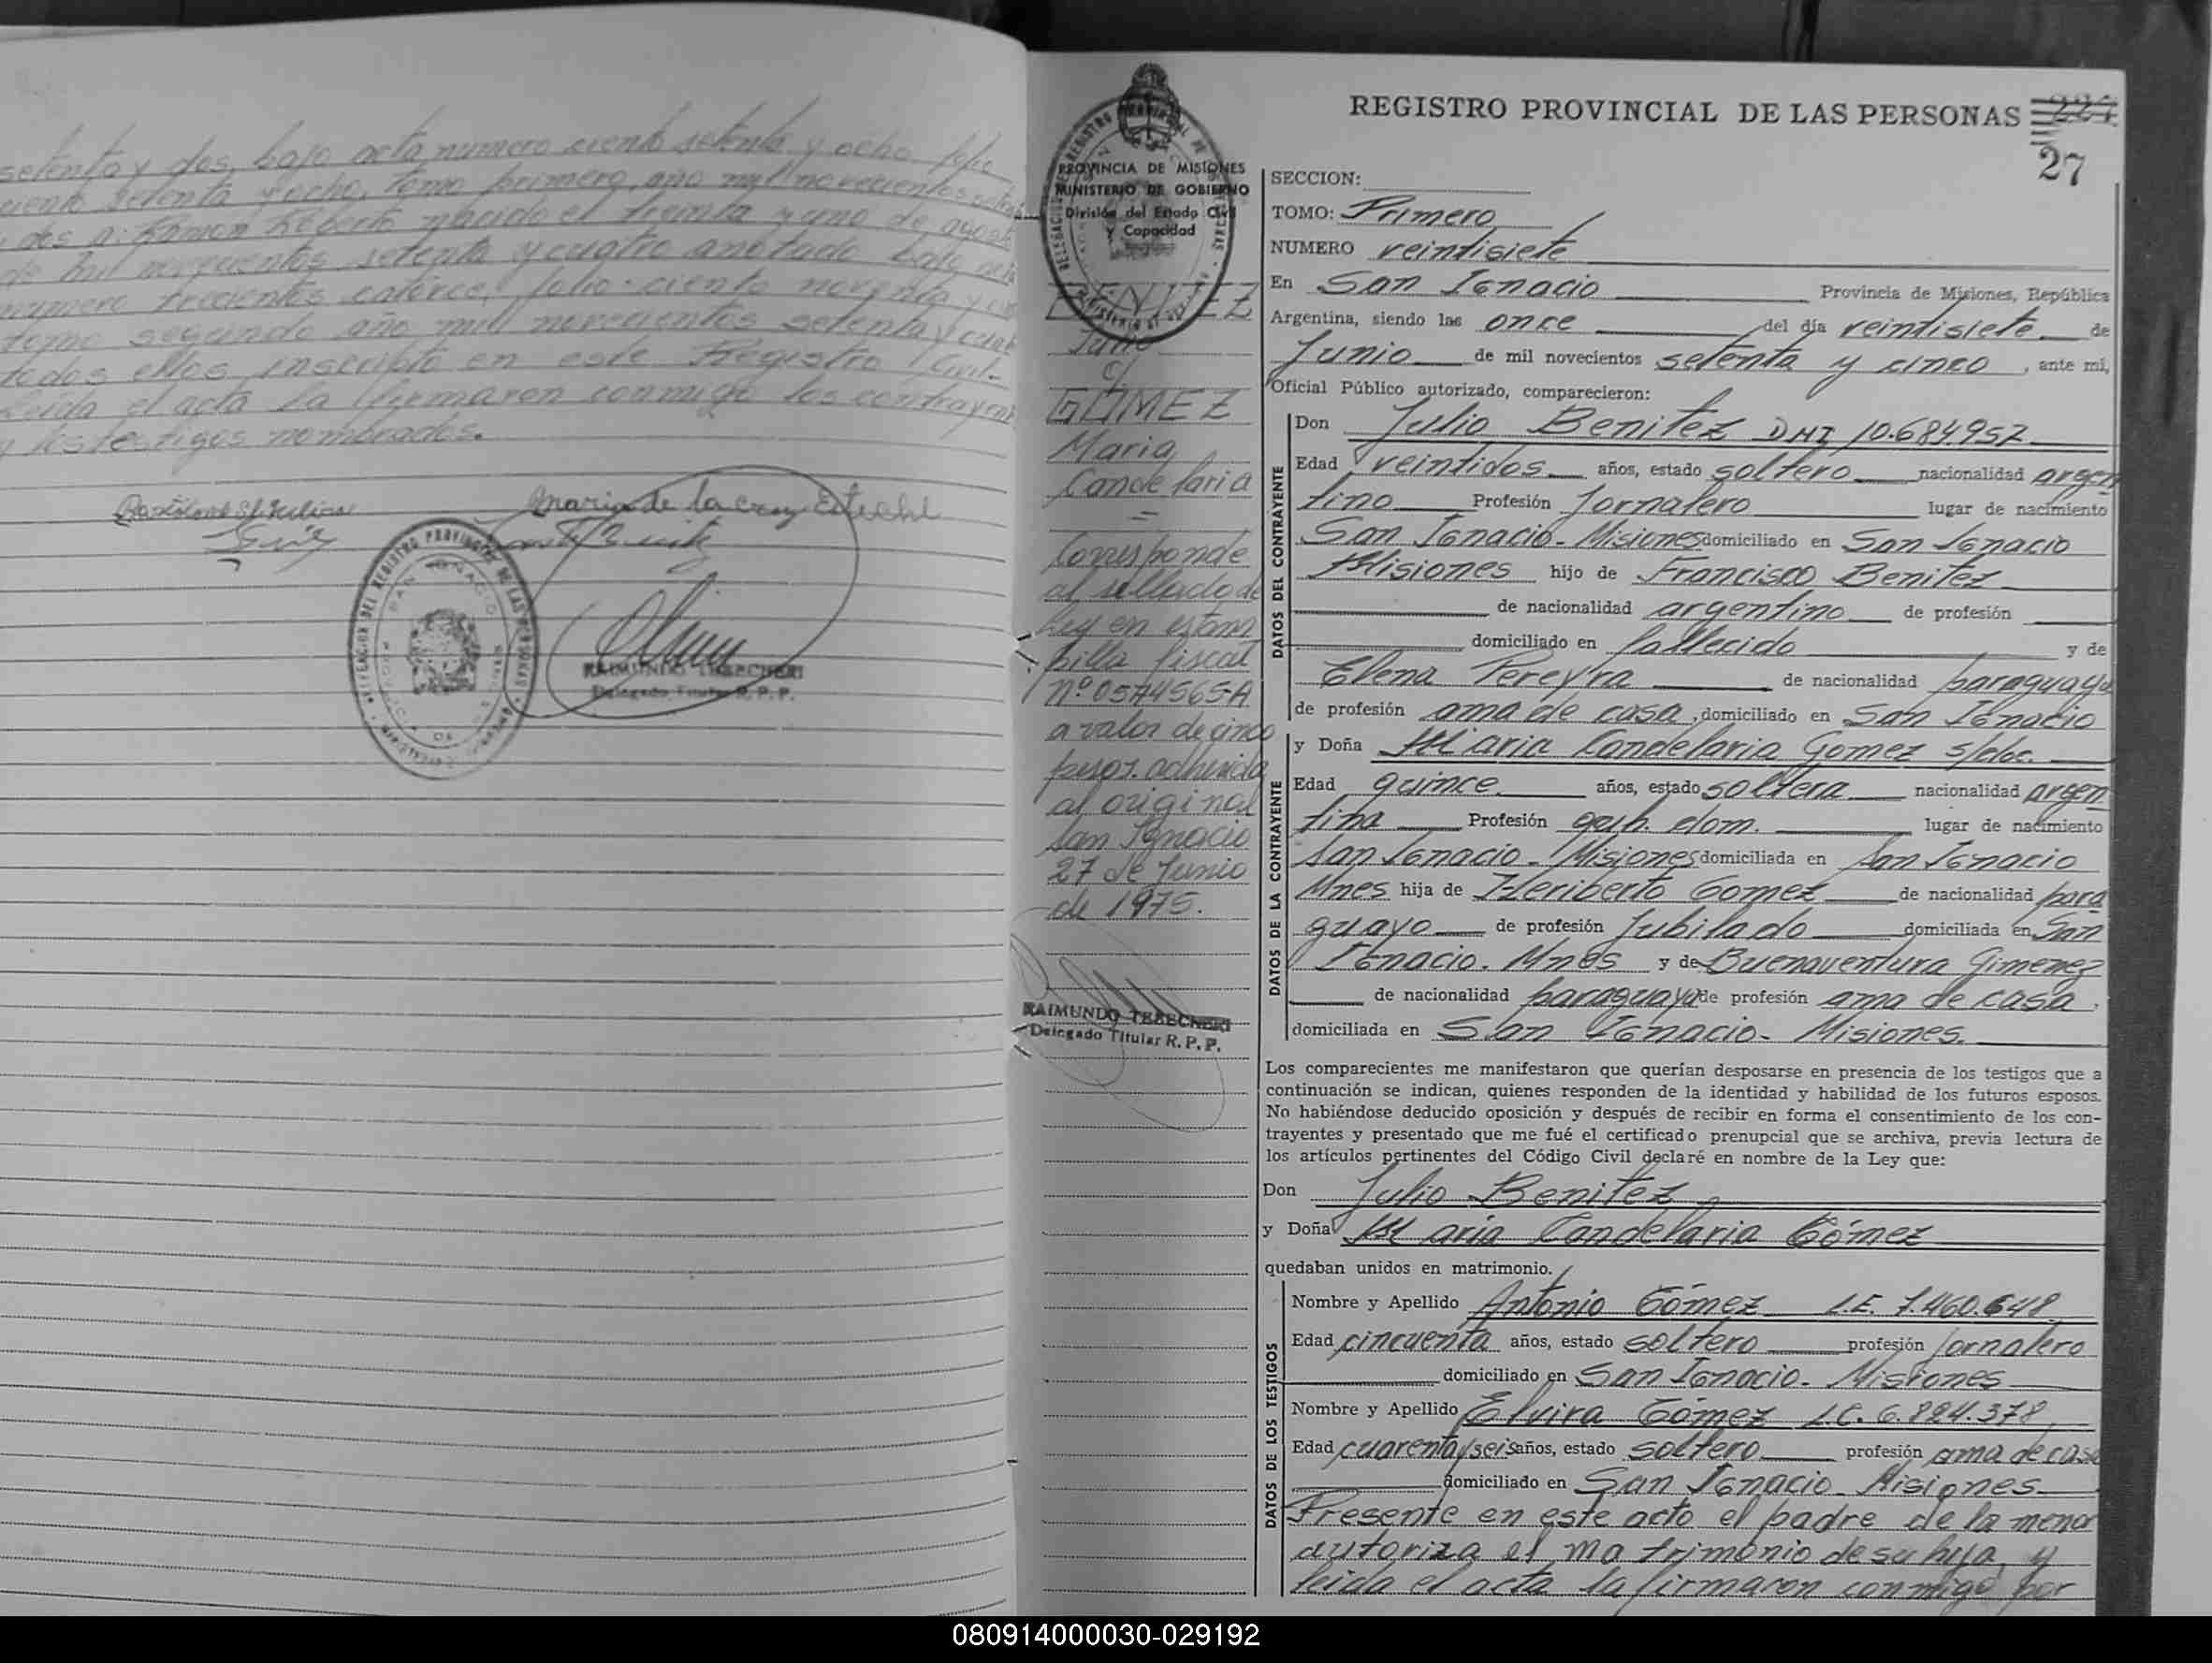 setenta y dos, bajo acta numero ciento setenta y ocho folio
ciento setenta y ocho, tomo primero, año mil novecientos seten
y dos a: Ramon Roberto nacido el treinta y uno de agosto
de mil novecientos setenta y cuatro anotado bajo acta
numero trecientos catorce, folio ciento noventa y
tomo segundo año mil novecientos setenta y cuat
todos ellos inscripto en este Registro Civil.
Leida el acta la firmaron conmigo los contrayent
y los testigos nombrados.
Maria de la cruz
DELEGACION DEL REGISTRO PROVINCIAL DE LAS PERSONAS
SAN IGNACIO
RAIMUNDO TERECHERI
Delegado Titular R. P. P.
REGISTRO PROVINCIAL DE LAS PERSONAS 227
27
PROVINCIA DE MISIONES
MINISTERIO DE GOBIERNO
División del Estado Civil
y Capacidad
BENITEZ
Julio
c/
GOMEZ
Maria
Candelaria
=
Corresponde
al sellado de
Ley en estam
pilla fiscal
nº 0574565-A
a valor de cinco
pesos. adherida
al original
San Ignacio
27 de Junio
de 1975.
RAIMUNDO TERECHERI
Delegado Titular R. P. P.
SECCION:
TOMO: Primero
NUMERO veintisiete
En San Ignacio Provincia de Misiones, República
Argentina, siendo las once del día veintisiete de
Junio de mil novecientos setenta y cinco, ante mi,
Oficial Público autorizado, comparecieron:
DATOS DEL CONTRAYENTE
Don Julio Benitez DNI 10.684.957
Edad veintidos años, estado soltero nacionalidad argen
tino Profesión Jornalero lugar de nacimiento
San Ignacio - Misiones domiciliado en San Ignacio
Misiones hijo de Francisco Benitez
de nacionalidad argentino de profesión
domiciliado en fallecido y de
Elena Pereyra de nacionalidad paraguaya
de profesión ama de casa, domiciliado en San Ignacio
DATOS DE LA CONTRAYENTE
y Doña Maria Candelaria Gomez s/doc.
Edad quince años, estado soltera nacionalidad argen
tina Profesión queh. dom. lugar de nacimiento
San Ignacio - Misiones domiciliada en San Ignacio
Mnes hija de Heriberto Gomez de nacionalidad para
guayo de profesión Jubilado domiciliada en San
Ignacio. Mnes y de Buenaventura Gimenez
de nacionalidad paraguaya de profesión ama de casa,
domiciliada en San Ignacio - Misiones.
Los comparecientes me manifestaron que querían desposarse en presencia de los testigos que a
continuación se indican, quienes responden de la identidad y habilidad de los futuros esposos.
No habiéndose deducido oposición y después de recibir en forma el consentimiento de los con-
trayentes y presentado que me fué el certificado prenupcial que se archiva, previa lectura de
los artículos pertinentes del Código Civil declaré en nombre de la Ley que:
Don Julio Benitez
y Doña Maria Candelaria Gómez
quedaban unidos en matrimonio.
DATOS DE LOS TESTIGOS
Nombre y Apellido Antonio Gómez L.E. 7.460.648
Edad cincuenta años, estado soltero profesión jornalero
domiciliado en San Ignacio - Misiones
Nombre y Apellido Elvira Gómez L.C. 6.824.378
Edad cuarenta y seis años, estado soltero profesión ama de casa
domiciliado en San Ignacio - Misiones
Presente en este acto el padre de la menor
autoriza el matrimonio de su hija, y
leida el acta la firmaron conmigo por
080914000030-029192